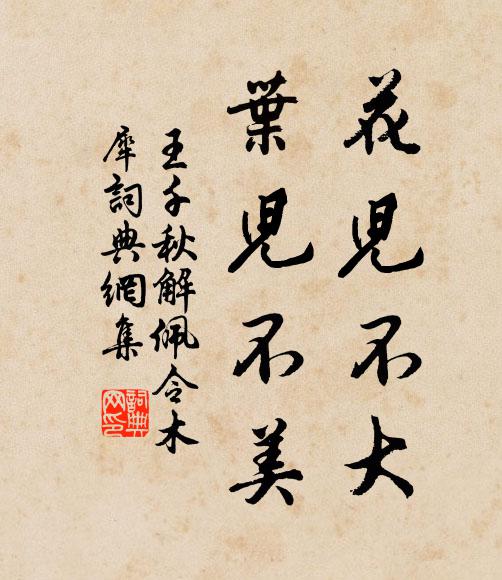 花兒不大
葉兒不美
王千秋解佩令木
犀詞典網集
詞典网印